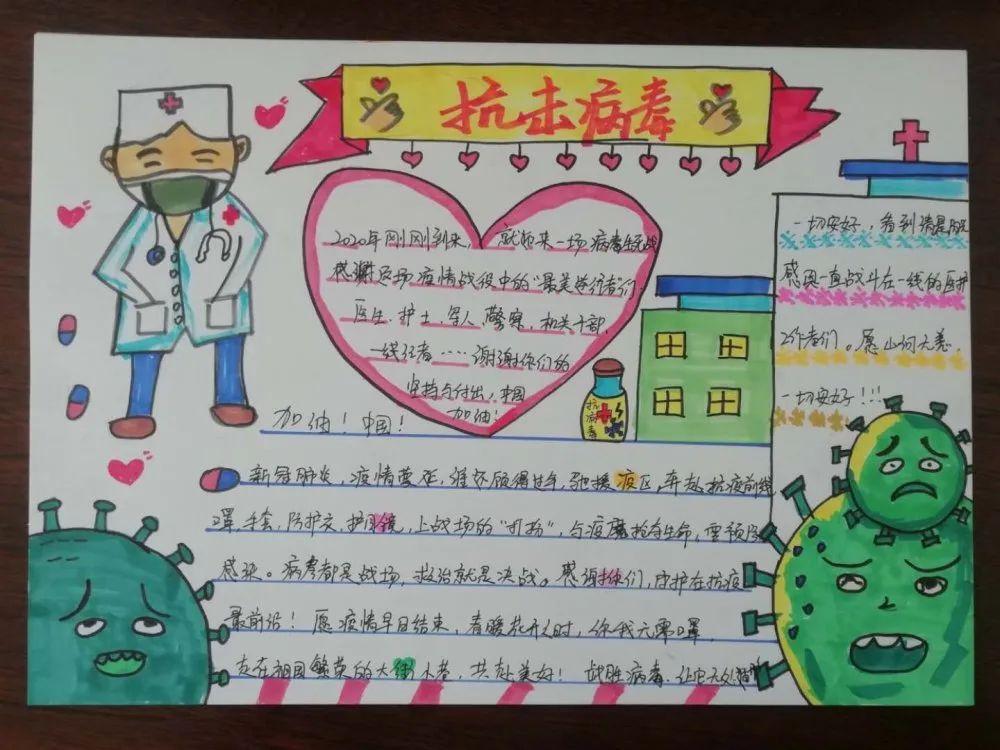 抗击病毒
2020年刚刚到来，就带来一场病毒
感谢这场疫情战役中的“最美逆行者”们
医生、护士、军人、警察、机关干部、
一线记者……谢谢你们的
坚持与付出，中国
加油！
加油！中国！
抗病毒
一切安好，看到
感恩一直战斗在一线的医护
工作者们。愿山河无恙，
一切安好！！！
新冠肺炎，疫情蔓延，谁还顾得过年，驰援疫区，奔赴抗疫前线
罩、手套、防护衣、护目镜，上战场的“打扮”，与疫魔抢夺生命，要预防
感染。病房都是战场，救治就是决战。感谢你们，守护在抗疫
最前沿！愿疫情早日结束，春暖花开时，你我无需口罩，
走在祖国繁荣的大街小巷，共赴美好！战胜病毒，让它无处